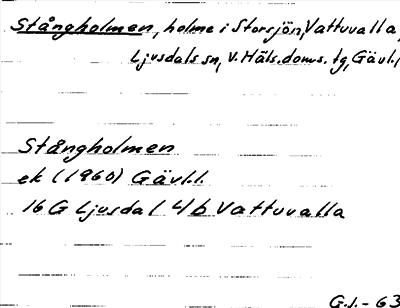 Stångholmen, holme i Storsjön, Vattuvalla,
Ljusdals sn, V. Häls. doms. tg, Gävl.l
Stångholmen
ek (1960) Gävl.l.
16 G Ljusdal 4 b Vattuvalla
G.J. - 63